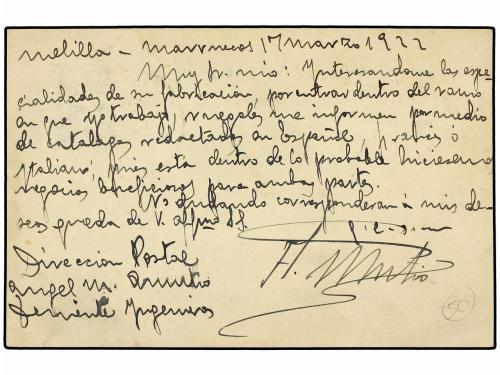 Melilla - Marruecos 17 Marzo 1922
Muy Sr. mio: Interesandome las espe
cialidades de su fabricación, por entrar dentro del ramo
en que yo trabajo, ruegoles me informen por medio
de catalogos redactados en Español, ó
Italiano, pues esta dentro de lo probable hiciesemos
negocios beneficiosos para ambas partes.
No dudando corresponderan á mis de-
seos queda de V. affmo SS.
Direccion Postal
Angel M.
Teniente Ingenieros
50